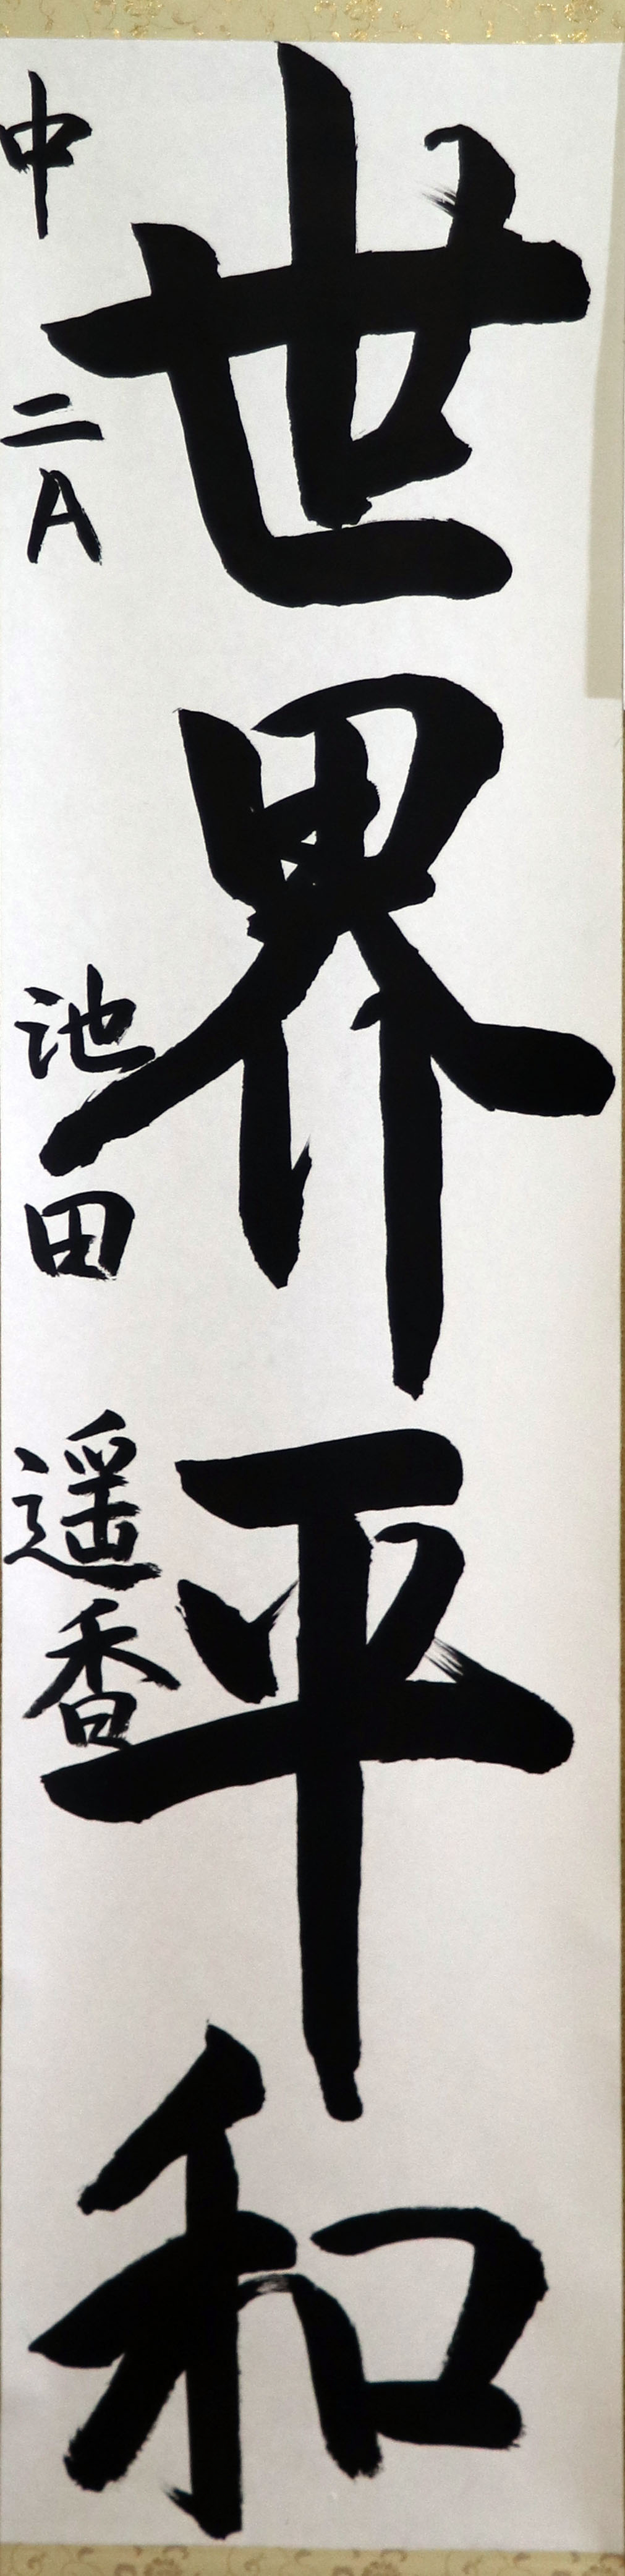 世界平和
中二A 池田遥香